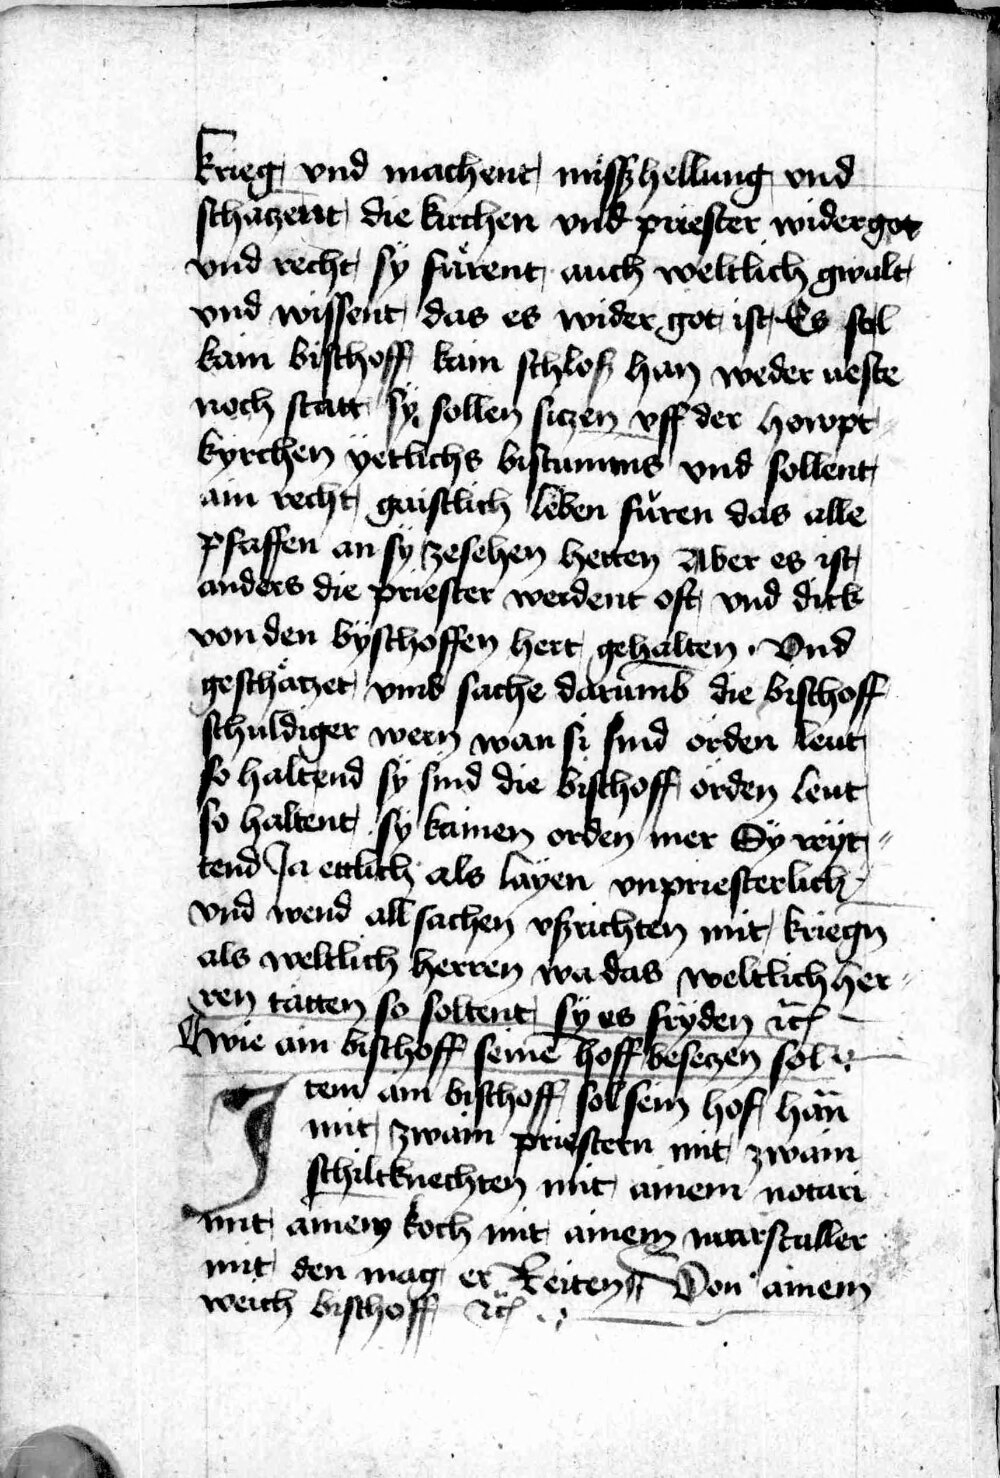 krieg vnd machent mißhellung vnd
schaczent die kirchen vnd priester wider got
vnd recht sÿ fuͤrent auch weltlich gwalt
vnd wissent das es wider got ist Es sol
kain bischoff kain schloß han weder ueste
noch statt sÿ sollen siczen vff der howpt-
kÿrchen ÿetlichs bistumms vnd sollent
ain recht gaistlich leben fuͤren das alle
pfaffen an sÿ zesehen hetten Aber es ist
anders die priester werdent oft vnd dick
von den bÿschoffen hert gehalten · Vnd
geschaͤtzet vmb sache darumb die bischoff
schuldiger wern wan si sind orden leut
so haltend sÿ sind die bischoff orden leut
so haltent sÿ kainen orden mer Sÿ reÿt-
tend Ja ettlich als laÿen vnpriesterlich
vnd wend all sachen vßrichten mit kriegn
als weltlich herren wa das weltlich her-
ren taͤtten so soltent sÿ es frÿden ꝛc̃
wie ain bischoff seinē hoff beseczen sol
Item ain bischoff sol sein hof han
mit zwain priestern mit zwain
schiltknechten mit ainem notari
mit ainem koch mit ainem marstaller
mit den mag er Reiten Von ainem
weich bischoff ꝛc̃